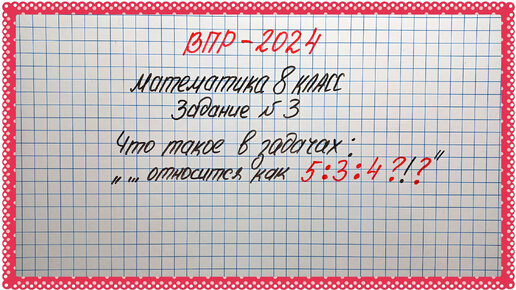 ВПР-2024
Математика 8 класс
Задание №3
Что такое в задачах:
„ ... относится как 5:3:4?!?"